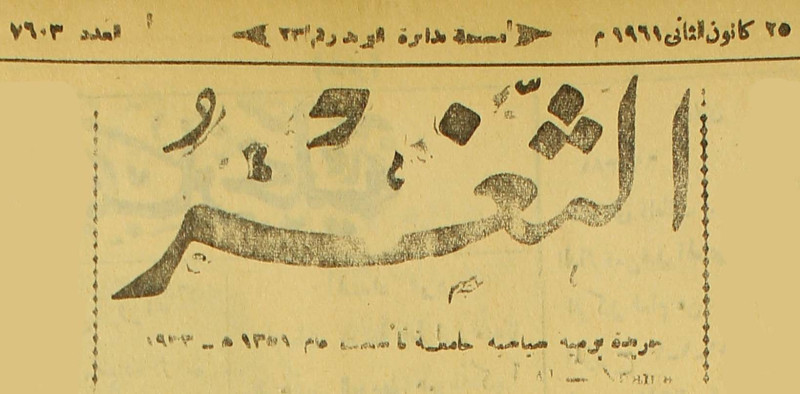 ٢٥ كانون الثاني ١٩٦١ م رقم ٢٣ العدد ٧٦٠٣
الثَّغْرُ
جريدة يومية سياسية جامعة تأسست عام ١٣٥١ هـ - ١٩٣٣